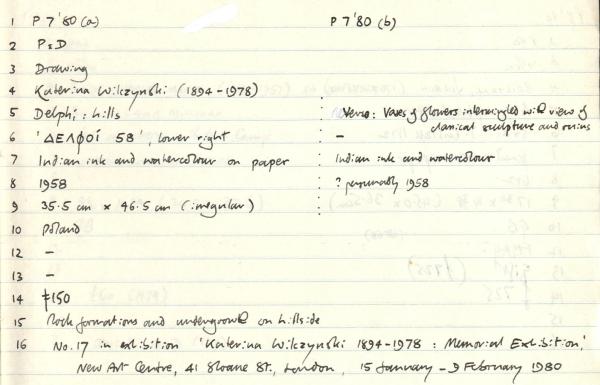 1 P 7'80 (a) P 7'80 (b)
2 P&D
3 Drawing
4 Katerina Wilczynski (1894-1978)
5 Delphi: hills Verso: Vases of flowers intermingled with view of
classical sculpture and ruins
6 'ΔΕΛΦΟΊ 58', lower right –
7 Indian ink and watercolour on paper Indian ink and watercolour
8 1958 ? presumably 1958
9 35.5 cm x 46.5 cm (irregular)
10 Poland
12 –
13 –
14 £150
15 Rock formations and undergrowth on hillside
16 No. 17 in exhibition 'Katerina Wilczynski 1894-1978: Memorial Exhibition,'
New Art Centre, 41 Sloane St., London, 15 January - 9 February 1980